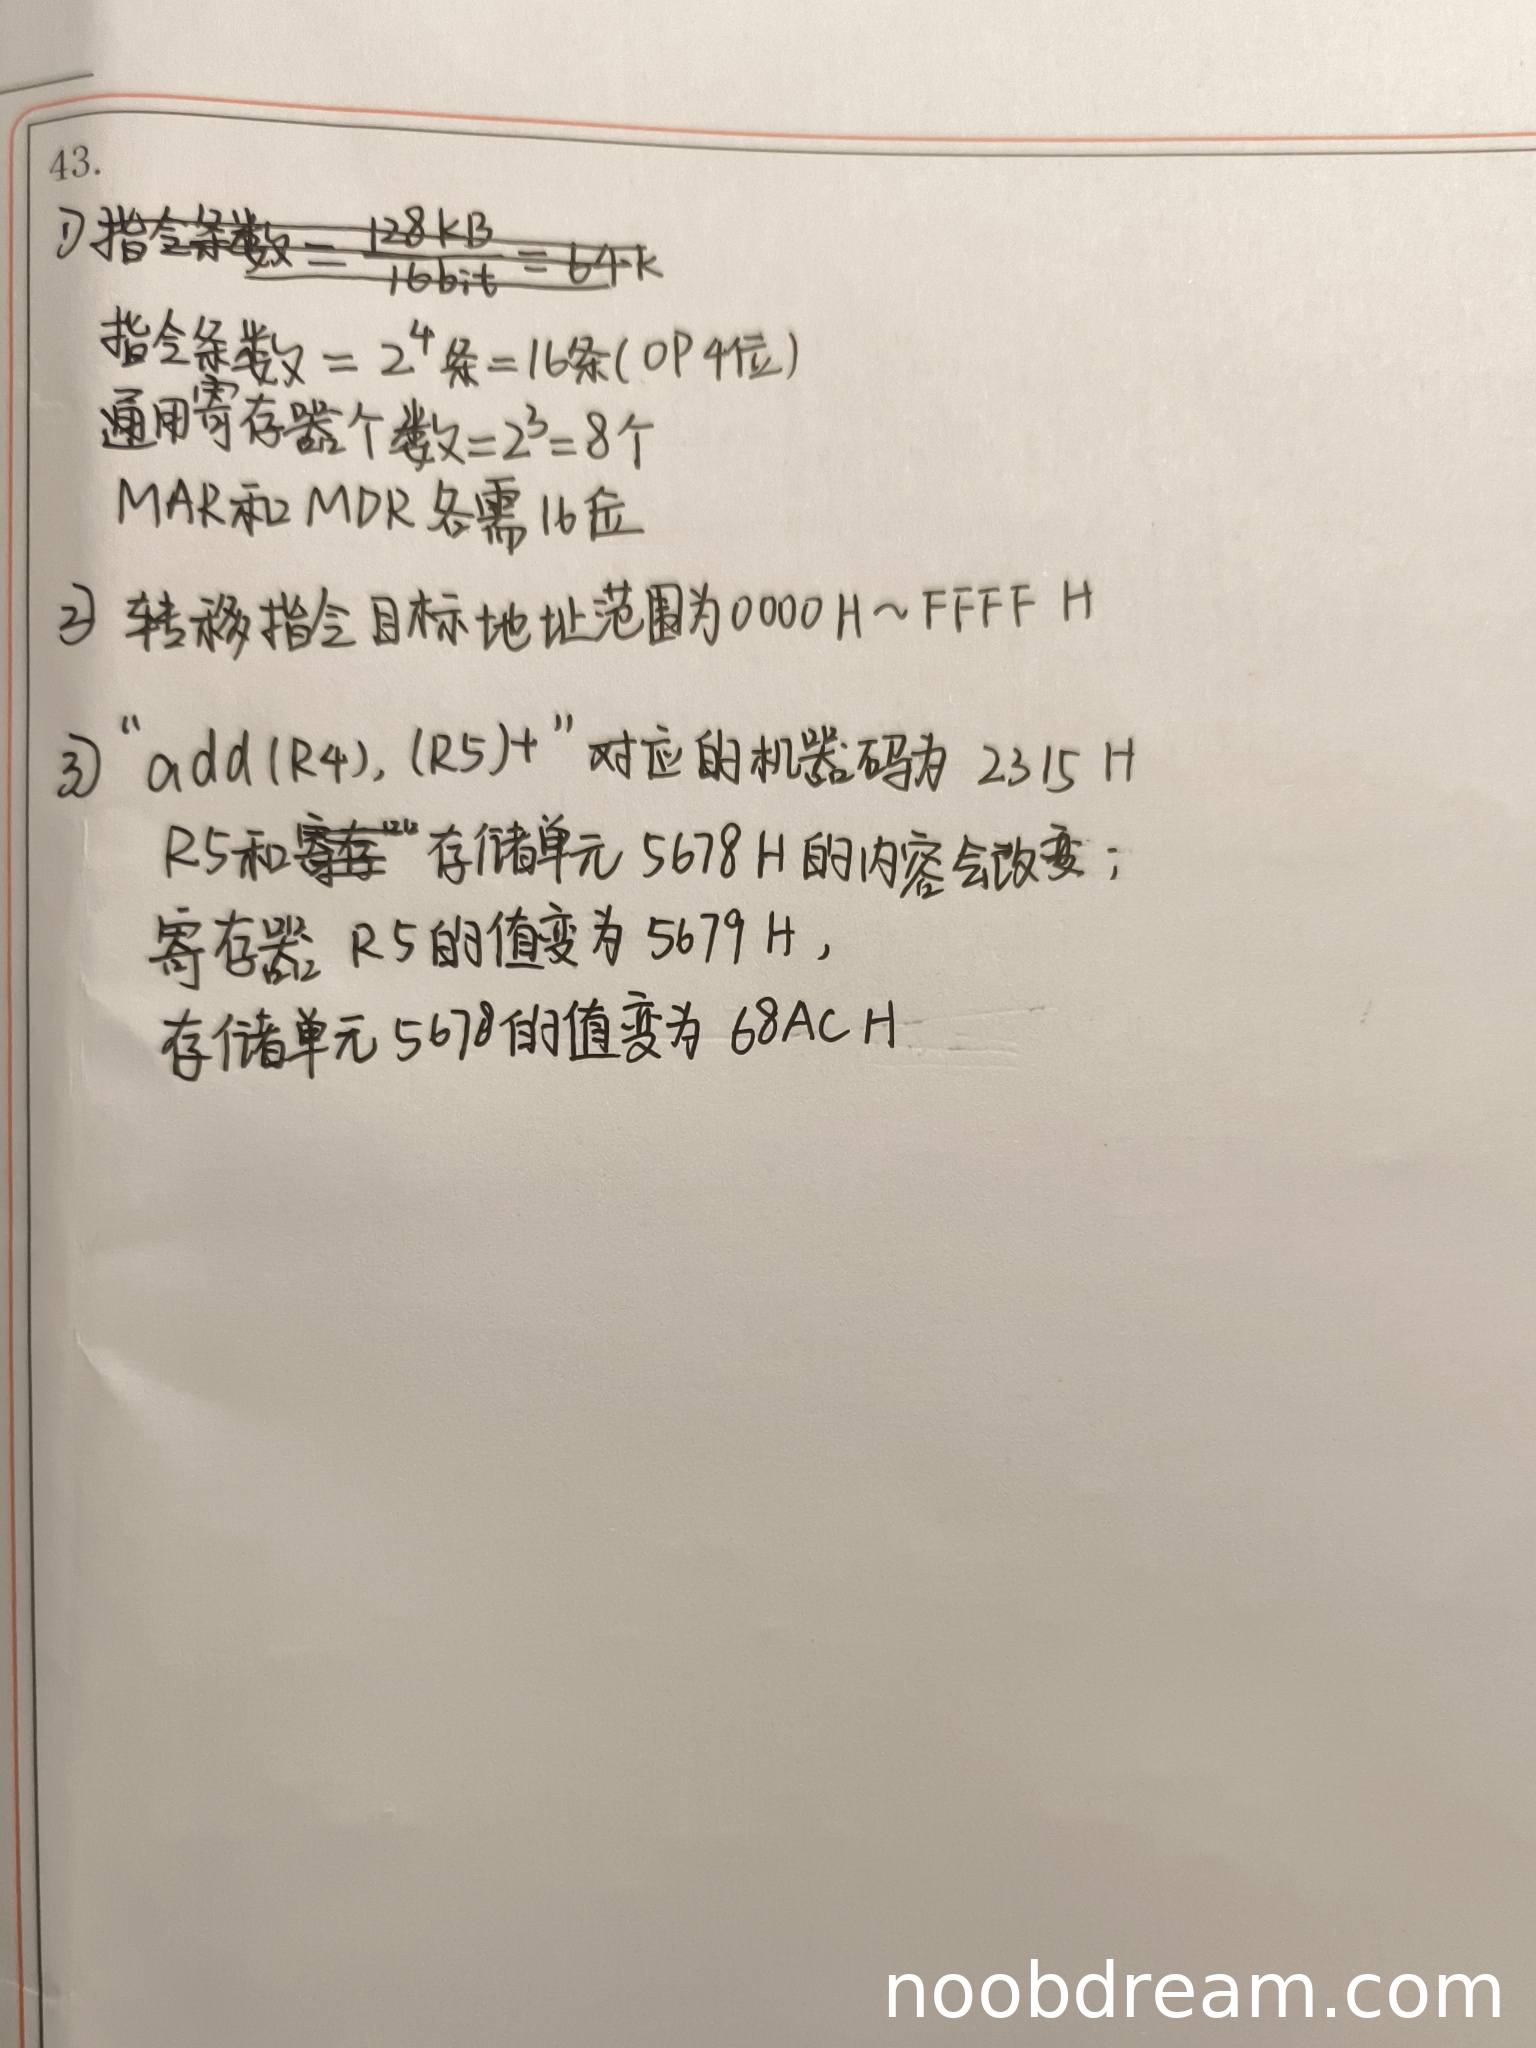 43.
1) 指令条数 = 128KB / 16bit = 64K
指令条数 = 2^4条 = 16条(OP 4位)
通用寄存器个数 = 2^3 = 8个
MAR和MDR各需16位
2) 转移指令目标地址范围为0000H~FFFF H
3) "add(R4), (R5)+" 对应的机器码为 2315 H
R5和寄存 存储单元 5678 H 的内容会改变；
寄存器 R5的值变为 5679 H，
存储单元 5678的值变为 68AC H
noobdream.com